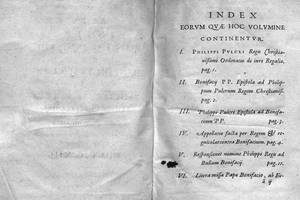 INDEX
EORVM QVÆ HOC VOLVMINE
CONTINENTVR.
I. PHILIPPI PVLCRI Regis Christia-
nissimi Ordonatio de iure Regalio.
pag. 1.
II. Bonifacij PP. Epistola ad Philip-
pum Pulcrum Regem Christianiss.
pag. 2.
III. Philippi Pulcri Epistola ad Bonifa-
cium PP. pag. 3.
IV. Appellatio facta per Regem &
regnicolas contra Bonifacium. pag. 4.
V. Responsiones nomine Philippi Regis ad
Bullam Bonifacij. pag. 11.
VI. Litera missa Papæ Bonifacio, ab
ij